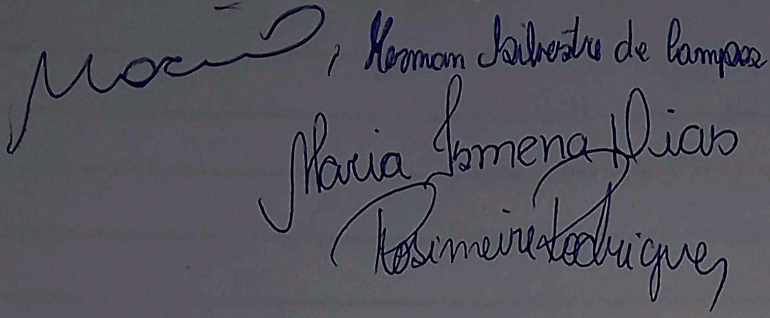 , Herman Silvestre de Campos
Maria Ismena Dias
Rosimeire Rodrigues